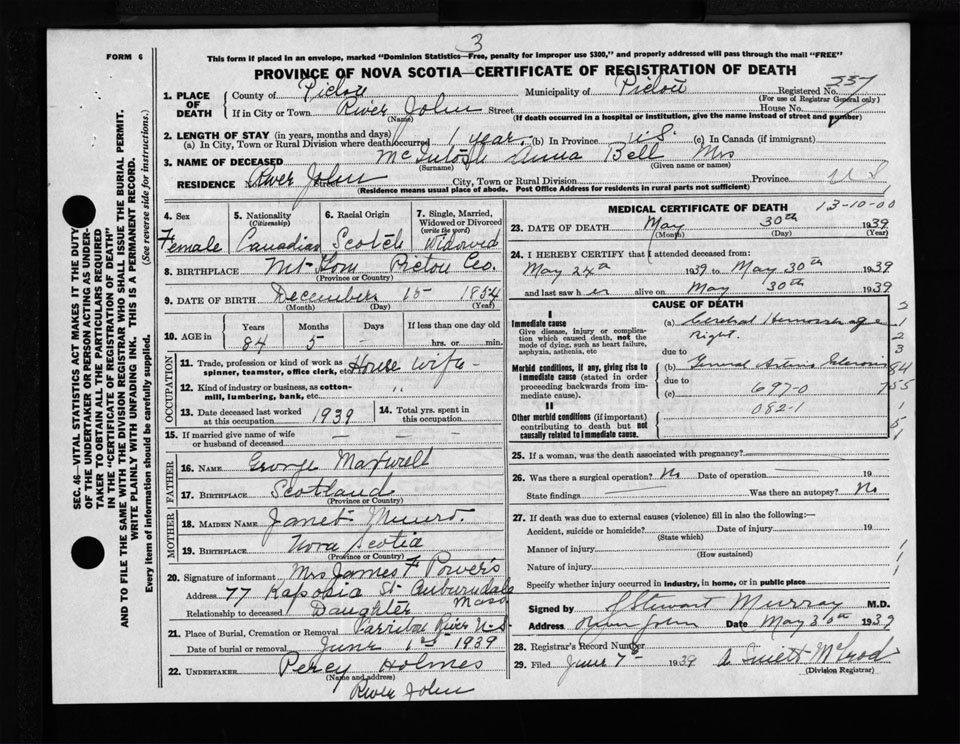 3
FORM 6
This form if placed in an envelope, marked "Dominion Statistics—Free, penalty for improper use $300," and properly addressed will pass through the mail "FREE"
PROVINCE OF NOVA SCOTIA—CERTIFICATE OF REGISTRATION OF DEATH
1. PLACE OF DEATH County of Pictou Municipality of Pictou Registered No. 337
(For use of Registrar General only)
If in City or Town River John Street House No.
(Name) (If death occurred in a hospital or institution, give the name instead of street and number)
2. LENGTH OF STAY (in years, months and days)
(a) In City, Town or Rural Division where death occurred 1 year. (b) In Province (c) In Canada (if immigrant)
3. NAME OF DECEASED McIntosh Anna Bell Mrs
(Surname) (Given name or names)
RESIDENCE River John Street City, Town or Rural Division Province
(Residence means usual place of abode. Post Office Address for residents in rural parts not sufficient)
4. Sex Female
5. Nationality (Citizenship) Canadian
6. Racial Origin Scotch
7. Single, Married, Widowed or Divorced (write the word) Widowed
8. BIRTHPLACE Mt Thom Pictou Co.
(Province or Country)
9. DATE OF BIRTH December 15 1854
(Month) (Day) (Year)
10. AGE in Years Months Days If less than one day old
84 5 – hrs. or min.
OCCUPATION
11. Trade, profession or kind of work as spinner, teamster, office clerk, etc. House wife -
12. Kind of industry or business, as cotton-mill, lumbering, bank, etc. "
13. Date deceased last worked at this occupation 1939
14. Total yrs. spent in this occupation
15. If married give name of wife or husband of deceased – – –
FATHER
16. NAME George Maxwell
17. BIRTHPLACE Scotland
(Province or Country)
MOTHER
18. MAIDEN NAME Janet Munro.
19. BIRTHPLACE Nova Scotia
(Province or Country)
20. Signature of informant Mrs James F Powers
Address 77 Kaposia St Auburndale Mass
Relationship to deceased Daughter
21. Place of Burial, Cremation or Removal River N.S.
Date of burial or removal June 1st 1939
22. UNDERTAKER Percy Holmes
(Name and address)
River John
MEDICAL CERTIFICATE OF DEATH 13-10-00
23. DATE OF DEATH May 30th 1939
(Month) (Day) (Year)
24. I HEREBY CERTIFY that I attended deceased from:
May 24th 1939 to May 30th 1939
and last saw her alive on May 30th 1939
CAUSE OF DEATH
I
Immediate cause
Give disease, injury or complication which caused death, not the mode of dying, such as heart failure, asphyxia, asthenia, etc
(a) Cerebral Hemorrhage
Right.
due to
Morbid conditions, if any, giving rise to immediate cause (stated in order proceeding backwards from immediate cause).
(b) General Arterio Sclerosis
due to
(c) 697-0
II
Other morbid conditions (if important) contributing to death but not causally related to immediate cause.
082-1
25. If a woman, was the death associated with pregnancy?
26. Was there a surgical operation? No Date of operation 19
State findings Was there an autopsy? No
27. If death was due to external causes (violence) fill in also the following:—
Accident, suicide or homicide? Date of injury 19
(State which)
Manner of injury
(How sustained)
Nature of injury
Specify whether injury occurred in industry, in home, or in public place
Signed by Stewart Murray M.D.
Address River John Date May 30th 1939
28. Registrar's Record Number
29. Filed June 7th 1939
(Division Registrar)
SEC. 46—VITAL STATISTICS ACT MAKES IT THE DUTY
OF THE UNDERTAKER OR PERSON ACTING AS UNDER-
TAKER TO OBTAIN ALL THE PARTICULARS REQUIRED
IN THE "CERTIFICATE OF REGISTRATION OF DEATH"
AND TO FILE THE SAME WITH THE DIVISION REGISTRAR WHO SHALL ISSUE THE BURIAL PERMIT.
WRITE PLAINLY WITH UNFADING INK. THIS IS A PERMANENT RECORD.
Every item of information should be carefully supplied. (See reverse side for instructions.)